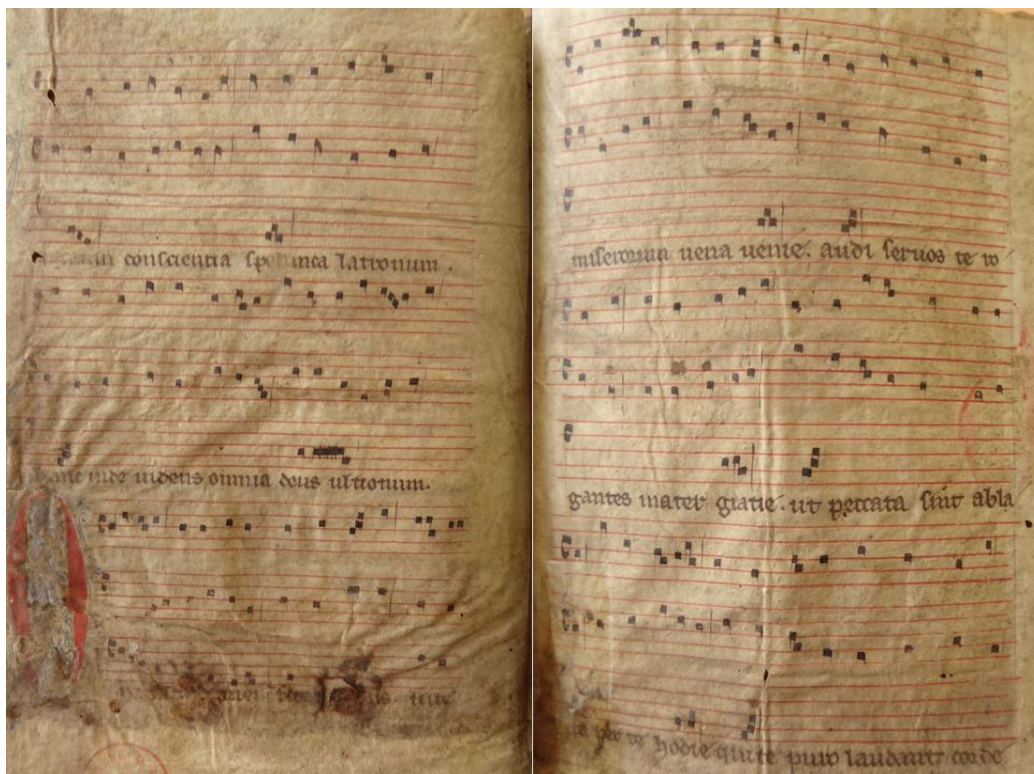 conscientia spelunca latronum.
hanc inde videns omnia deus ultionum.
miserorum vena venie. audi servos te ro
gantes mater gratie. ut peccata sint abla
ta per te hodie qui te puro laudant corde